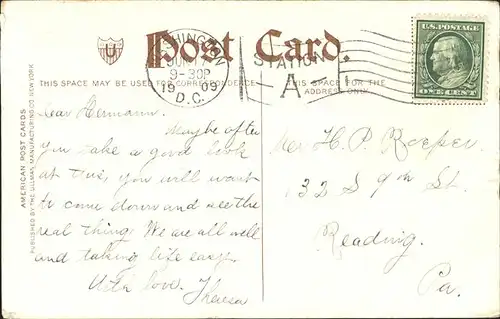 Post Card.
WASHINGTON
JUN
9-30P
1909
D.C.
STATION
A
U.S. POSTAGE
ONE CENT
THIS SPACE MAY BE USED FOR CORRESPONDENCE
THIS SPACE FOR THE
ADDRESS ONLY.
AMERICAN POST CARDS.
PUBLISHED BY THE ULLMAN MANUFACTURING CO. NEW YORK
Dear Hermann.
Maybe after
you take a good look
at this, you will want
to come down and see the
real thing. We are all well
and taking life easy.
With love. Theresa
H. P. Roeper.
132 S 9th St.
Reading.
Pa.